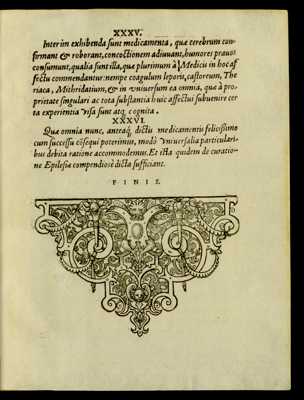 XXXV.
Interim exhibenda sunt medicamenta, quæ cerebrum con-
firmant & roborant, concoctionem adiuuant, humores prauos
consumunt, qualia sunt illa, quæ plurimum à Medicis in hoc af
fectu commendantur: nempe coagulum leporis, castoreum, The
riaca, Mithridatium, & in vniuersum ea omnia, quæ à pro-
prietate singulari ac tota substantia huic affectui subuenire cer
ta experientia visa sunt atq; cognita.
XXXVI.
Quæ omnia nunc, anteaq; dictis medicamentis felicissimo
cum successu cōsequi poterimus, modò vniuersalia particulari-
bus debita ratione accommodemus. Et ista quidem de curatio-
ne Epilepsiæ compendiosè dicta sufficiant.
FINIS.